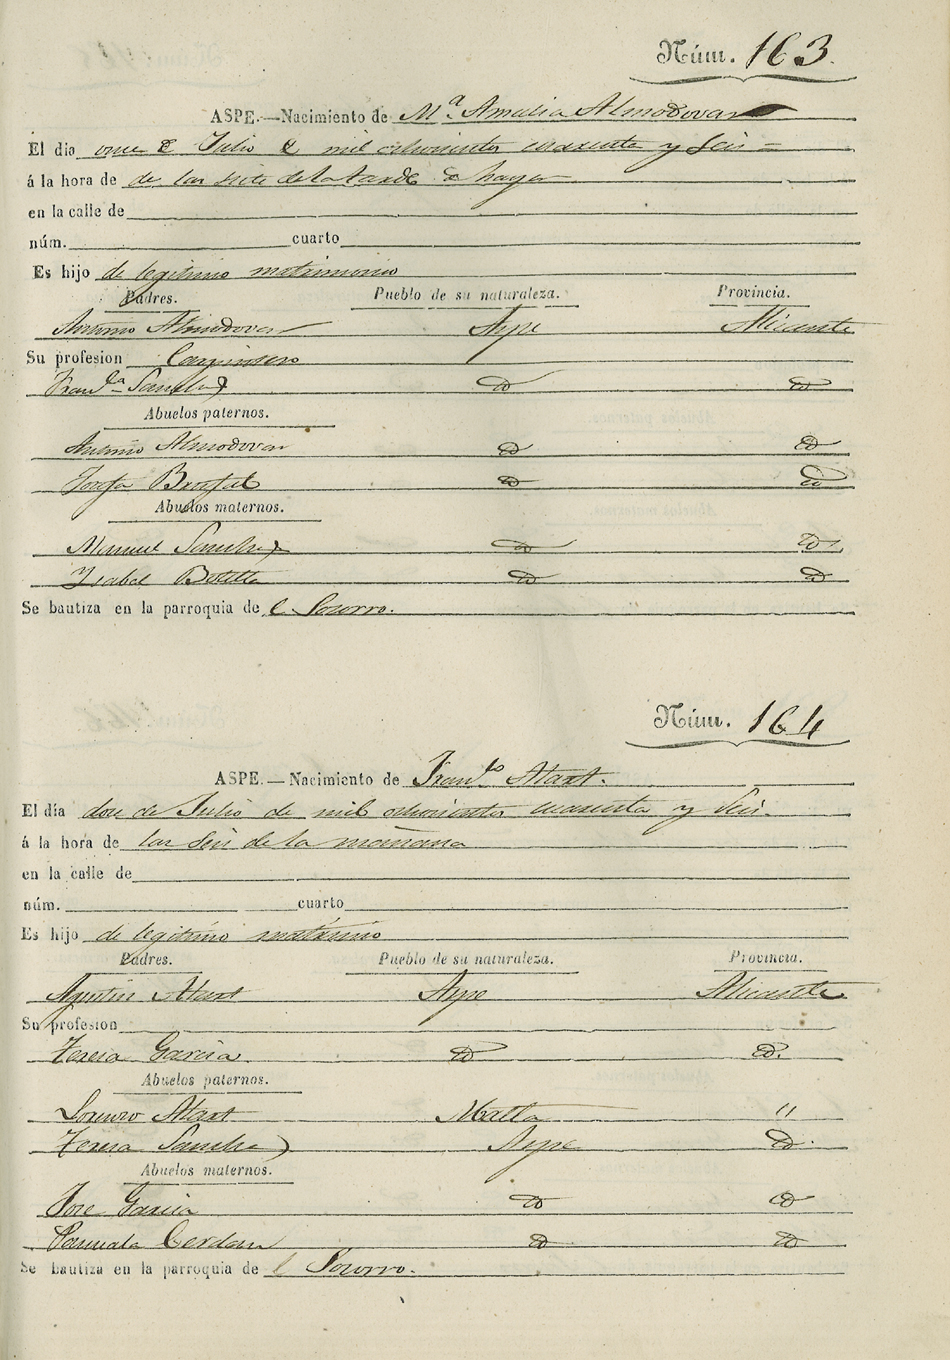 Núm. 163.
ASPE.—Nacimiento de Mª. Amalia Almodovar
El dia once de Julio de mil ochocientos cuarenta y Seis =
á la hora de de las siete de la tarde de hayer
en la calle de
núm. cuarto
Es hijo de legitimo matrimonio
Padres. Pueblo de su naturaleza. Provincia.
Antonio Almodovar Aspe Alicante
Su profesion
Franca Sanchez id id
Abuelos paternos.
Antonio Almodovar id id
Josefa Brufal id id
Abuelos maternos.
Manuel Sanchez id id
Ysabel Botella id id
Se bautiza en la parroquia de l Socorro.
Núm. 164
ASPE.—Nacimiento de Franco Atart.
El dia doce de Julio de mil ochocientos cuarenta y Seis.
á la hora de las Seis de la mañana
en la calle de
núm. cuarto
Es hijo de legitimo
Padres. Pueblo de su naturaleza. Provincia.
Agustin Atart Aspe Alicante
Su profesion
Teresa Garcia id id.
Abuelos paternos.
Lorenzo Atart Malta "
Teresa Sanchez Aspe id.
Abuelos maternos.
Jose Garcia id id
Pascuala Cerdan id id
Se bautiza en la parroquia de l Socorro.